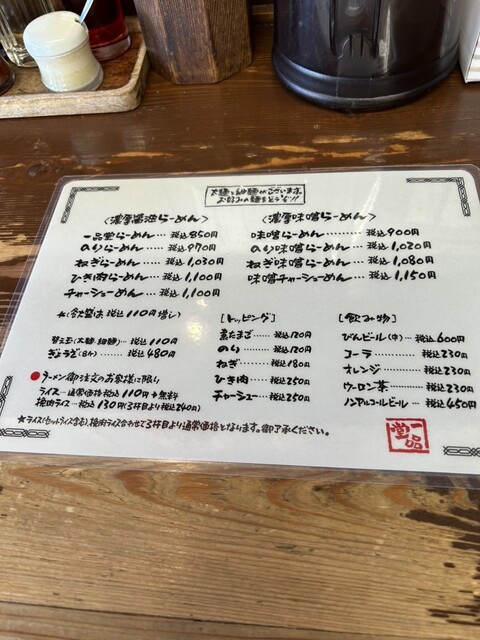 太麺と細麺がございます。
お好みの麺をどうぞ!!
<濃厚醤油らーめん>
一品堂らーめん… 税込850円
のりらーめん…… 税込970円
ねぎらーめん…… 税込1,030円
ひき肉らーめん… 税込1,100円
チャーシューめん… 税込1,100円
大盛は 税込110円増し)
替え玉(太麺・細麺)… 税込110円
ぎょうざ(5ケ)…… 税込480円
●ラーメン御注文のお客様に限り
ライス…通常価格税込110円→無料
挽肉ライス…税込130円(3杯目より税込240円)
★ライス(セットライス含む)、挽肉ライス合わせて3杯目より通常価格となります。御了承ください。
<濃厚味噌らーめん>
味噌らーめん…… 税込900円
のり味噌らーめん… 税込1,020円
ねぎ味噌らーめん… 税込1,080円
味噌チャーシューめん… 税込1,150円
[トッピング]
薫たまご… 税込120円
のり……… 税込120円
ねぎ……… 税込180円
ひき肉…… 税込250円
チャーシュー… 税込250円
[飲み物]
びんビール(中)… 税込600円
コーラ………… 税込230円
オレンジ……… 税込230円
ウーロン茶…… 税込230円
ノンアルコールビール… 税込450円
一品堂